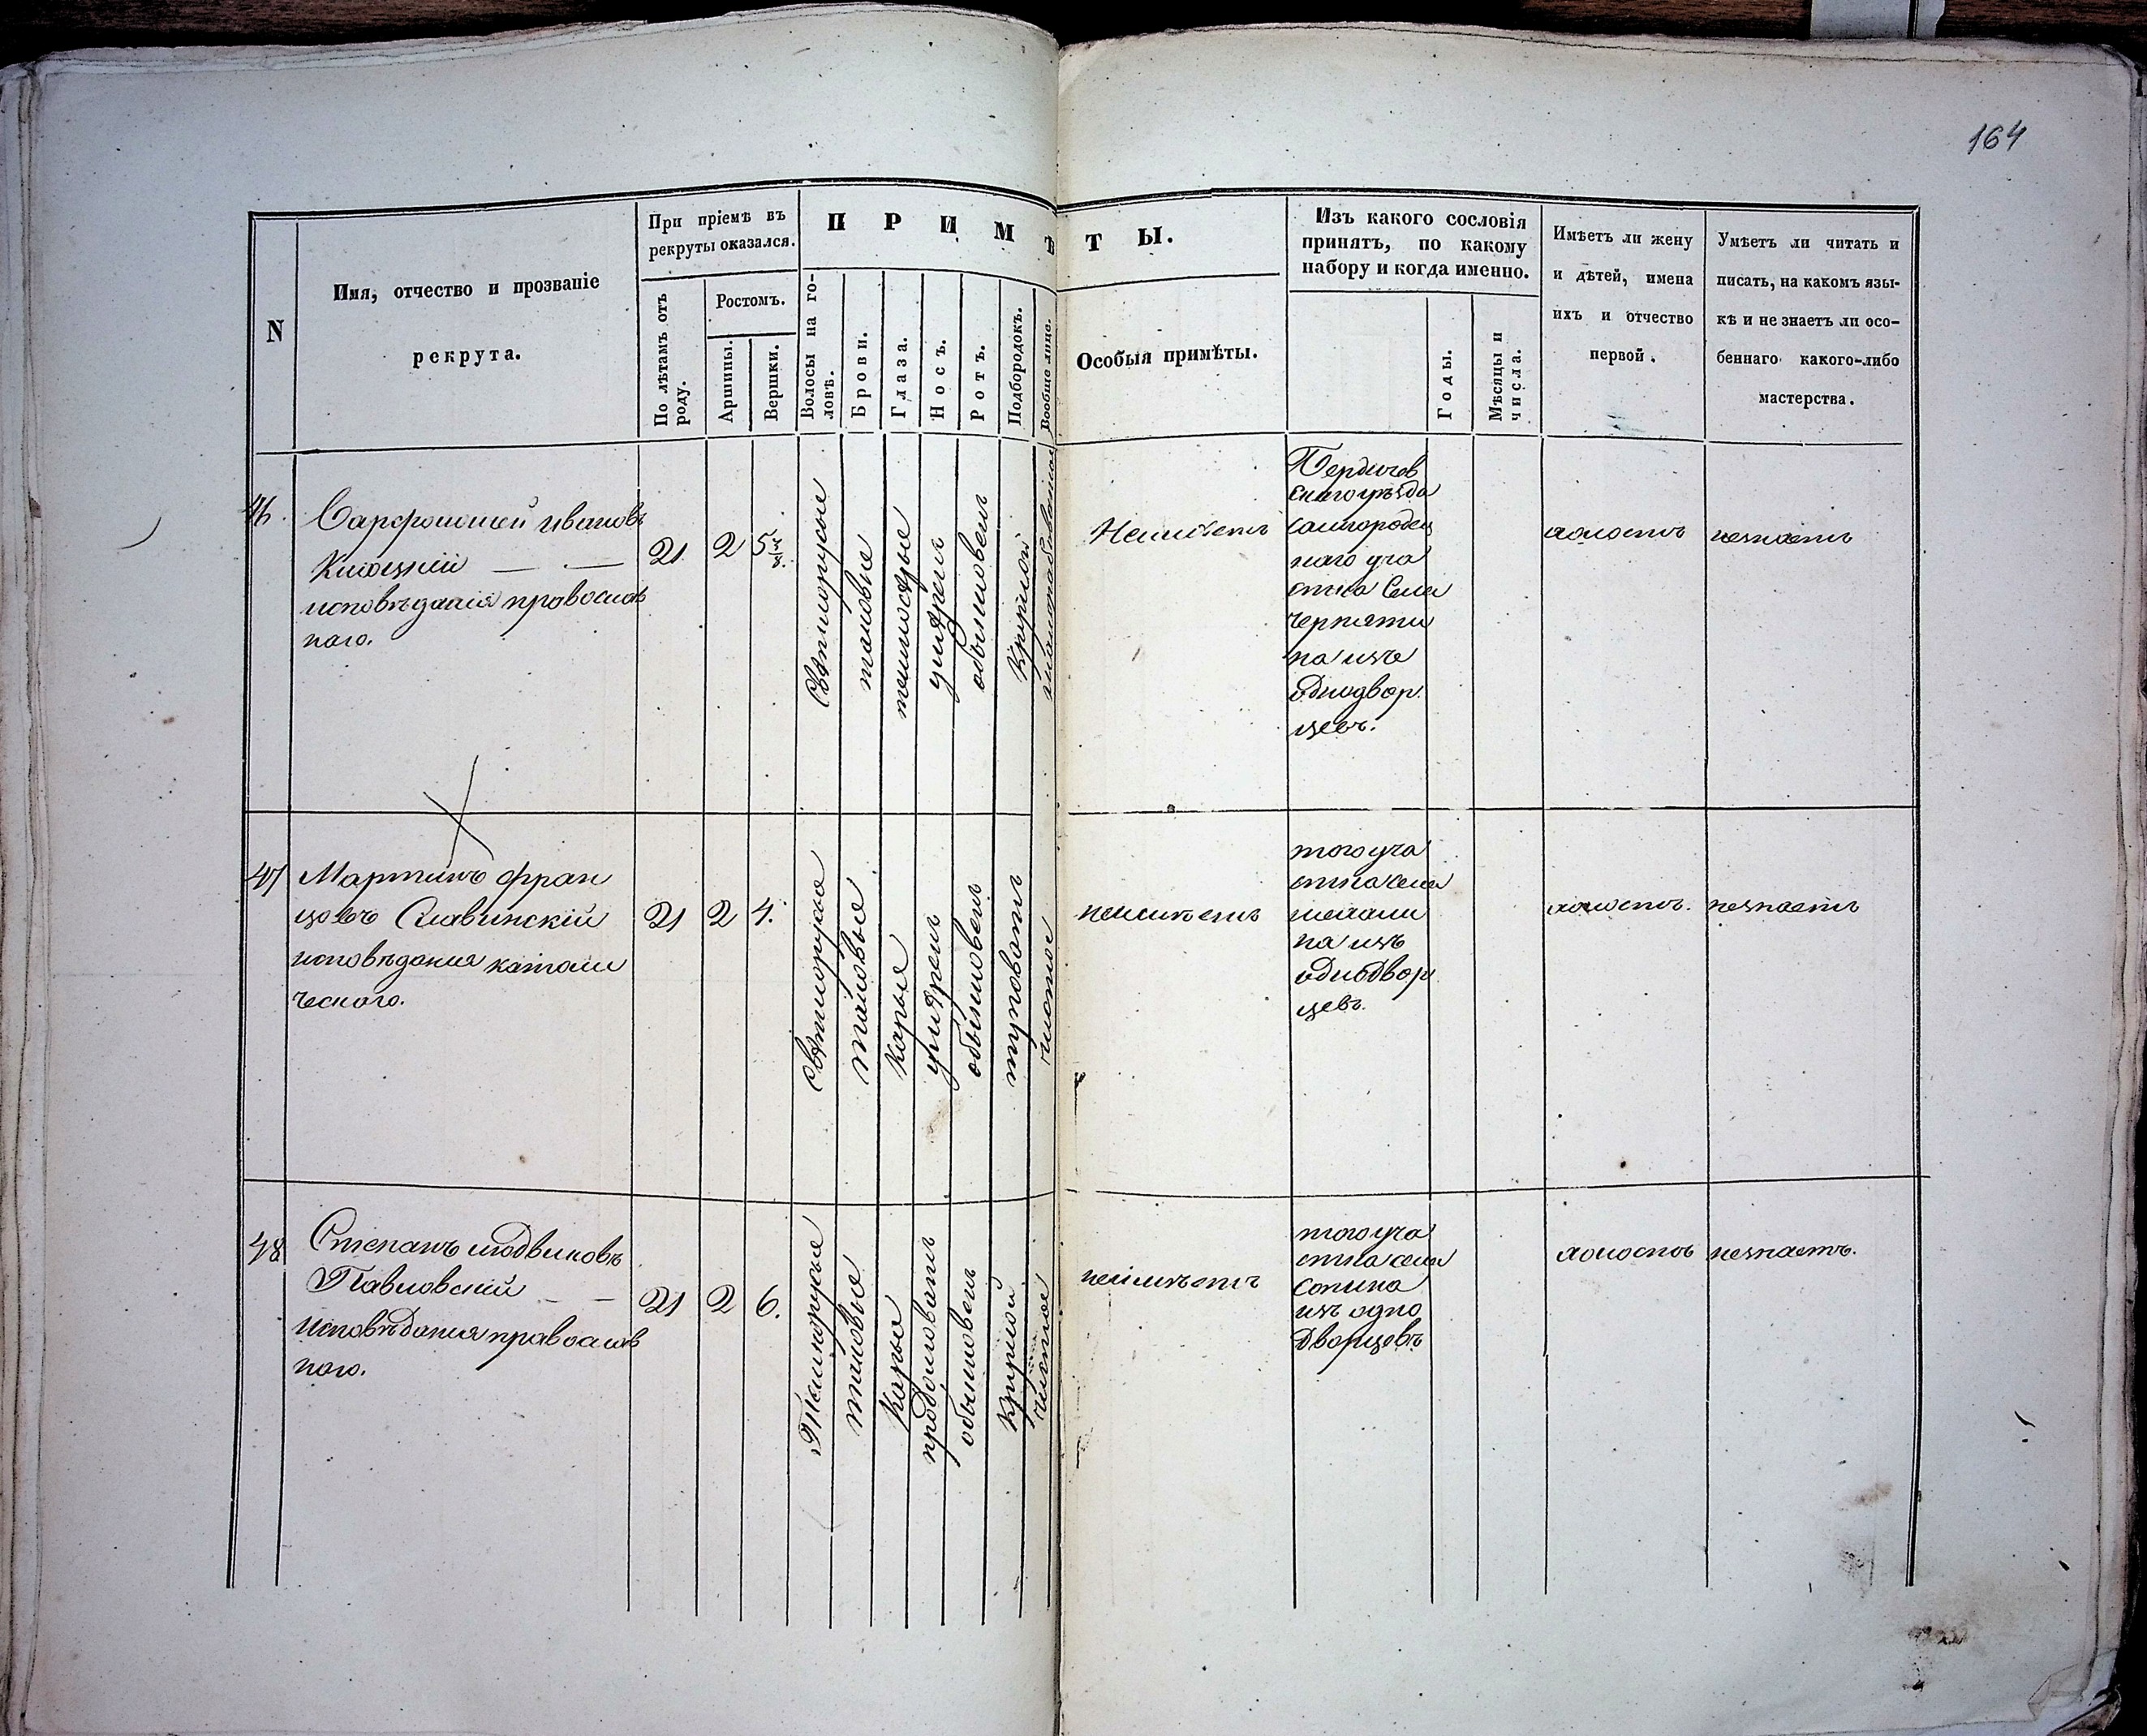 164
N
Имя, отчество и прозваніе
рекрута.
При пріемѣ въ
рекруты оказался.
По лѣтамъ отъ
роду.
Ростомъ.
Аршины.
Вершки.
П Р И М Ѣ Т Ы.
Волосы на го-
ловѣ.
Брови.
Глаза.
Носъ.
Ротъ.
Подбородокъ.
Вообще лице.
Особыя примѣты.
Изъ какого сословія
принятъ, по какому
набору и когда именно.
Годы.
Мѣсяцы и
числа.
Имѣетъ ли жену
и дѣтей, имена
ихъ и отчество
первой.
Умѣетъ ли читать и
писать, на какомъ язы-
кѣ и не знаетъ ли осо-
беннаго какого-либо
мастерства.
46.
Ивановъ
исповѣданія православ
наго.
21
2
5 3/8.
Свѣтлорусые
таковые
умѣренъ
обыкновенъ
Круглой
Неимѣетъ
Бердичов
скагоуѣзда
самгородец
каго уча
стка Села
чернятин
на изъ
однодвор
цевъ.
холостъ
незнаетъ
47
Мартинъ Фран
цовъ Славинскій
исповѣданія католи
ческаго.
21
2
4.
Свѣтлорусые
таковые
Карые
умѣренъ
обыкновенъ
туповатъ
чистое
неимѣетъ
того уча
стка села
на изъ
однодвор
цевъ.
холостъ.
незнаетъ
48
Степанъ Людвиковъ
Павловскій
исповѣданія православ
наго.
21
2
6.
Темнорусые
таковые
Карые
продолговатъ
обыкновенъ
Круглой
чистое
неимѣетъ
того уча
стка села
Сотина
изъ одно
дворцовъ
холостъ
незнаетъ.